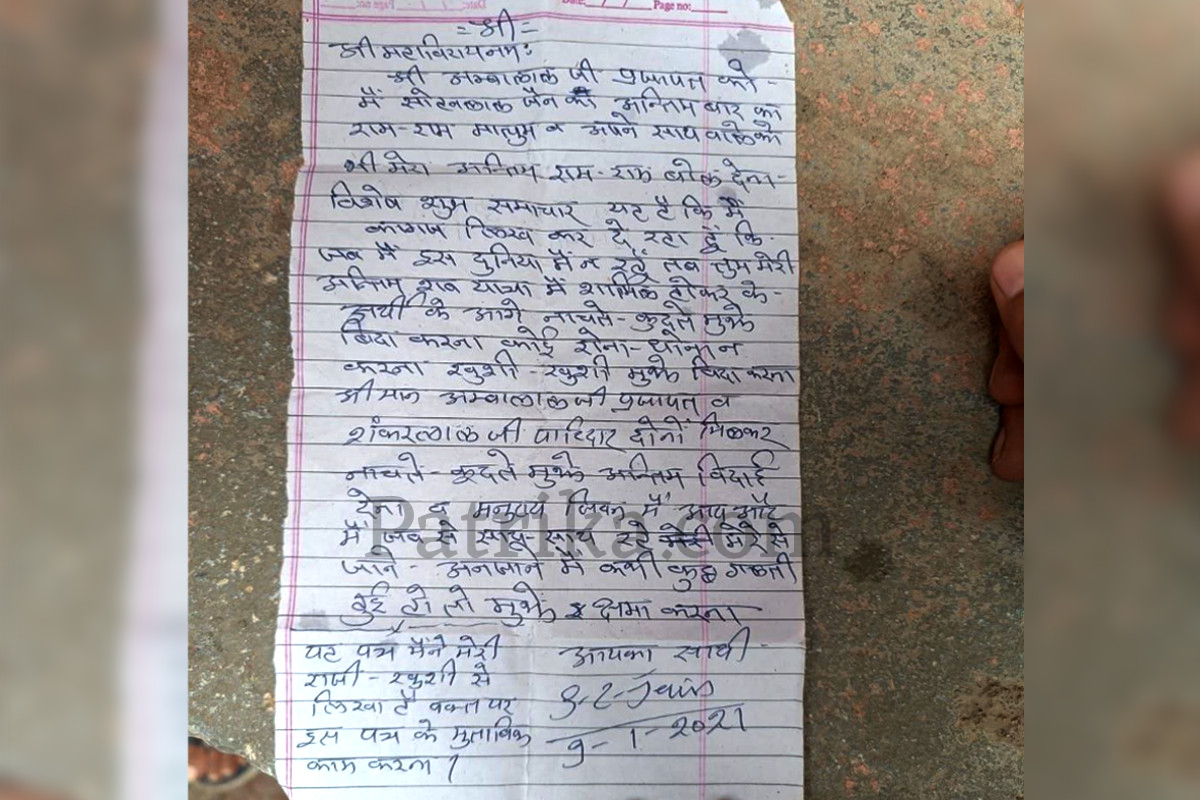 Date: / / Page no:
= श्री =
श्री महाविरायनमः
श्री अम्बालाल जी प्रजापत को -
मैं सोहनलाल जैन का अन्तिम बार का
राम-राम मालुम व अपने साथ वालेको
भी मेरा अन्तिम राम-राम बोल देना-
विशेष शुभ समाचार यह है कि मैं
कागज लिख कर दे रहा हूं कि
जब मैं इस दुनिया मैं न रहूँ तब तुम मेरी
अन्तिम शव यात्रा मैं शामिल होकर के-
अर्थी के आगे नाचते-कुदते मुझे
बिदा करना कोई रोना-धोना न
करना खुशी-खुशी मुझे विदा करना
श्रीमान अम्बालाल जी प्रजापत व
शंकरलाल जी पाटिदार दोनों मिलकर
नाचते-कुदते मुझे अन्तिम विदाई
देना व मनुष्य जिवन मैं आप और
मैं जब से साथ-साथ रहे मेरे से
जाने-अनजाने मैं कभी कुछ गलती
हुई हो तो मुझे क्षमा करना
यह पत्र मैंने मेरी
राजी-खुशी से
लिखा है वक्त पर
इस पत्र के मुताबिक
काम करना ।
आपका साथी
S.L. Jain
9-1-2021
Patrika.com